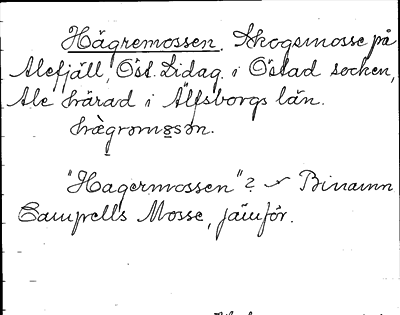 Hägremossen. Skogsmosse på
Alefjäll, Öst. Lidag. i Östad socken,
Ale härad i Älfsborgs län.
hæ̀grəmo̱sən.
"Hagermossen"? Binamn
Campells Mosse, jämför.